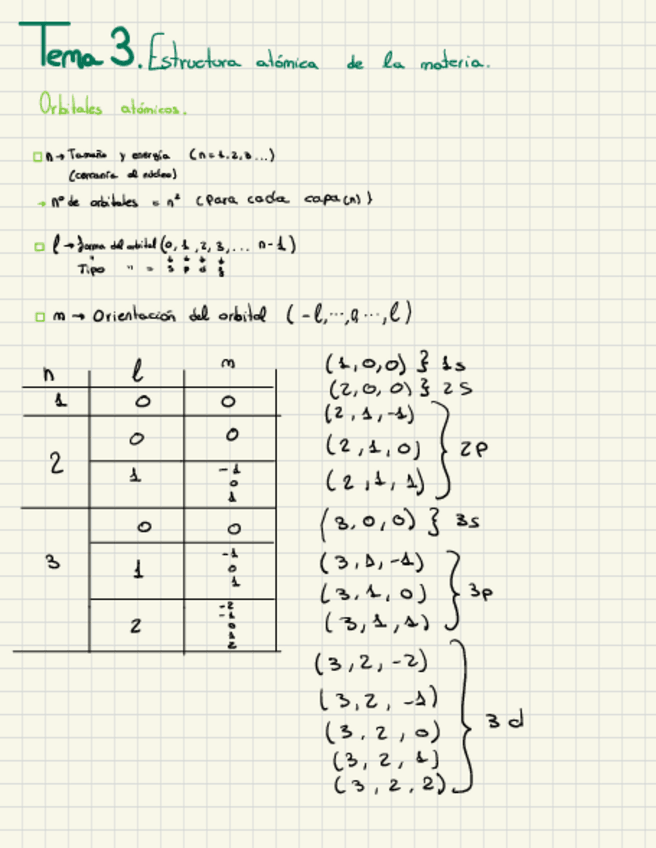 Tema 3. Estructura atómica de la materia.
Orbitales atómicos.
n → Tamaño y energía (n=1,2,3...)
(cercanía al núcleo)
→ nº de orbitales = n² (para cada capa(n))
l → forma del orbital (0, 1, 2, 3, ... n-1)
↓ ↓ ↓ ↓
Tipo " = s p d f
m → Orientación del orbital (-l,...,0...,l)
n l m
1 0 0
2 0 0
1 -1
0
1
3 0 0
1 -1
0
1
2 -2
-1
0
1
2
(1,0,0) } 1s
(2,0,0) } 2s
(2,1,-1)
(2,1,0) } 2p
(2,1,1)
(3,0,0) } 3s
(3,1,-1)
(3,1,0) } 3p
(3,1,1)
(3,2,-2)
(3,2,-1)
(3,2,0) } 3d
(3,2,1)
(3,2,2)